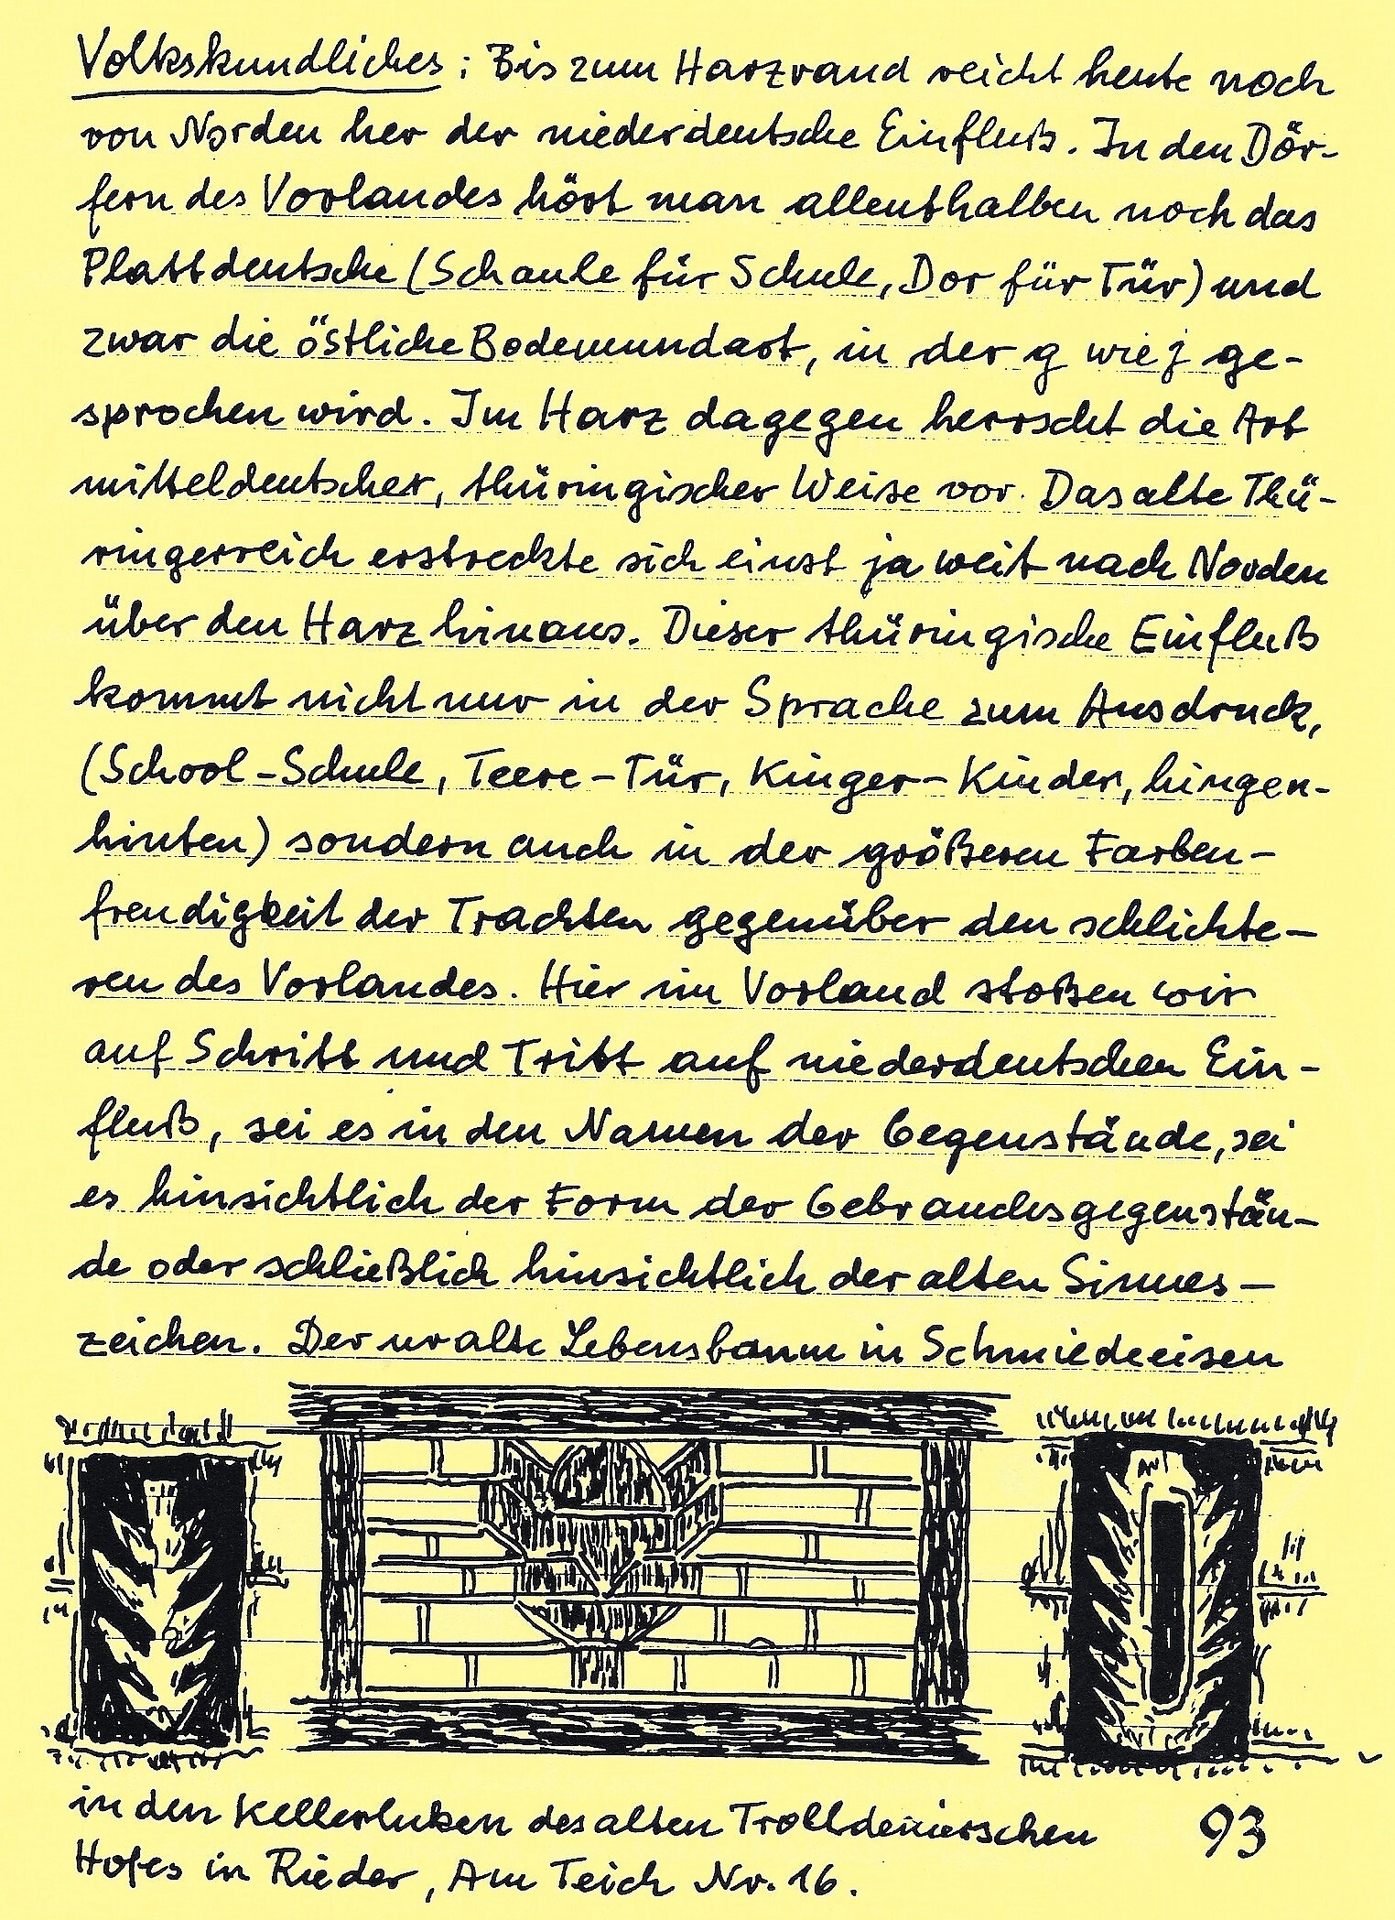 Volkskundliches: Bis zum Harzrand reicht heute noch
von Norden her der niederdeutsche Einfluß. In den Dör-
fern des Vorlandes hört man allenthalben noch das
Plattdeutsche (Schaule für Schule, Dor für Tür) und
zwar die östliche Bodemundart, in der g wie j ge-
sprochen wird. Im Harz dagegen herrscht die Art
mitteldeutscher, thüringischer Weise vor. Das alte Thü-
ringerreich erstreckte sich einst ja weit nach Norden
über den Harz hinaus. Dieser thüringische Einfluß
kommt nicht nur in der Sprache zum Ausdruck,
(School-Schule, Teere-Tür, Kinger-Kinder, hingen-
hinten) sondern auch in der größeren Farben-
freudigkeit der Trachten gegenüber den schlichte-
ren des Vorlandes. Hier im Vorland stoßen wir
auf Schritt und Tritt auf niederdeutschen Ein-
fluß, sei es in den Namen der Gegenstände, sei
es hinsichtlich der Form der Gebrauchsgegenstän-
de oder schließlich hinsichtlich der alten Sinnes-
zeichen. Der uralte Lebensbaum in Schmiedeeisen
in den Kellerluken des alten
Hofes in Rieder, Am Teich Nr. 16.
93